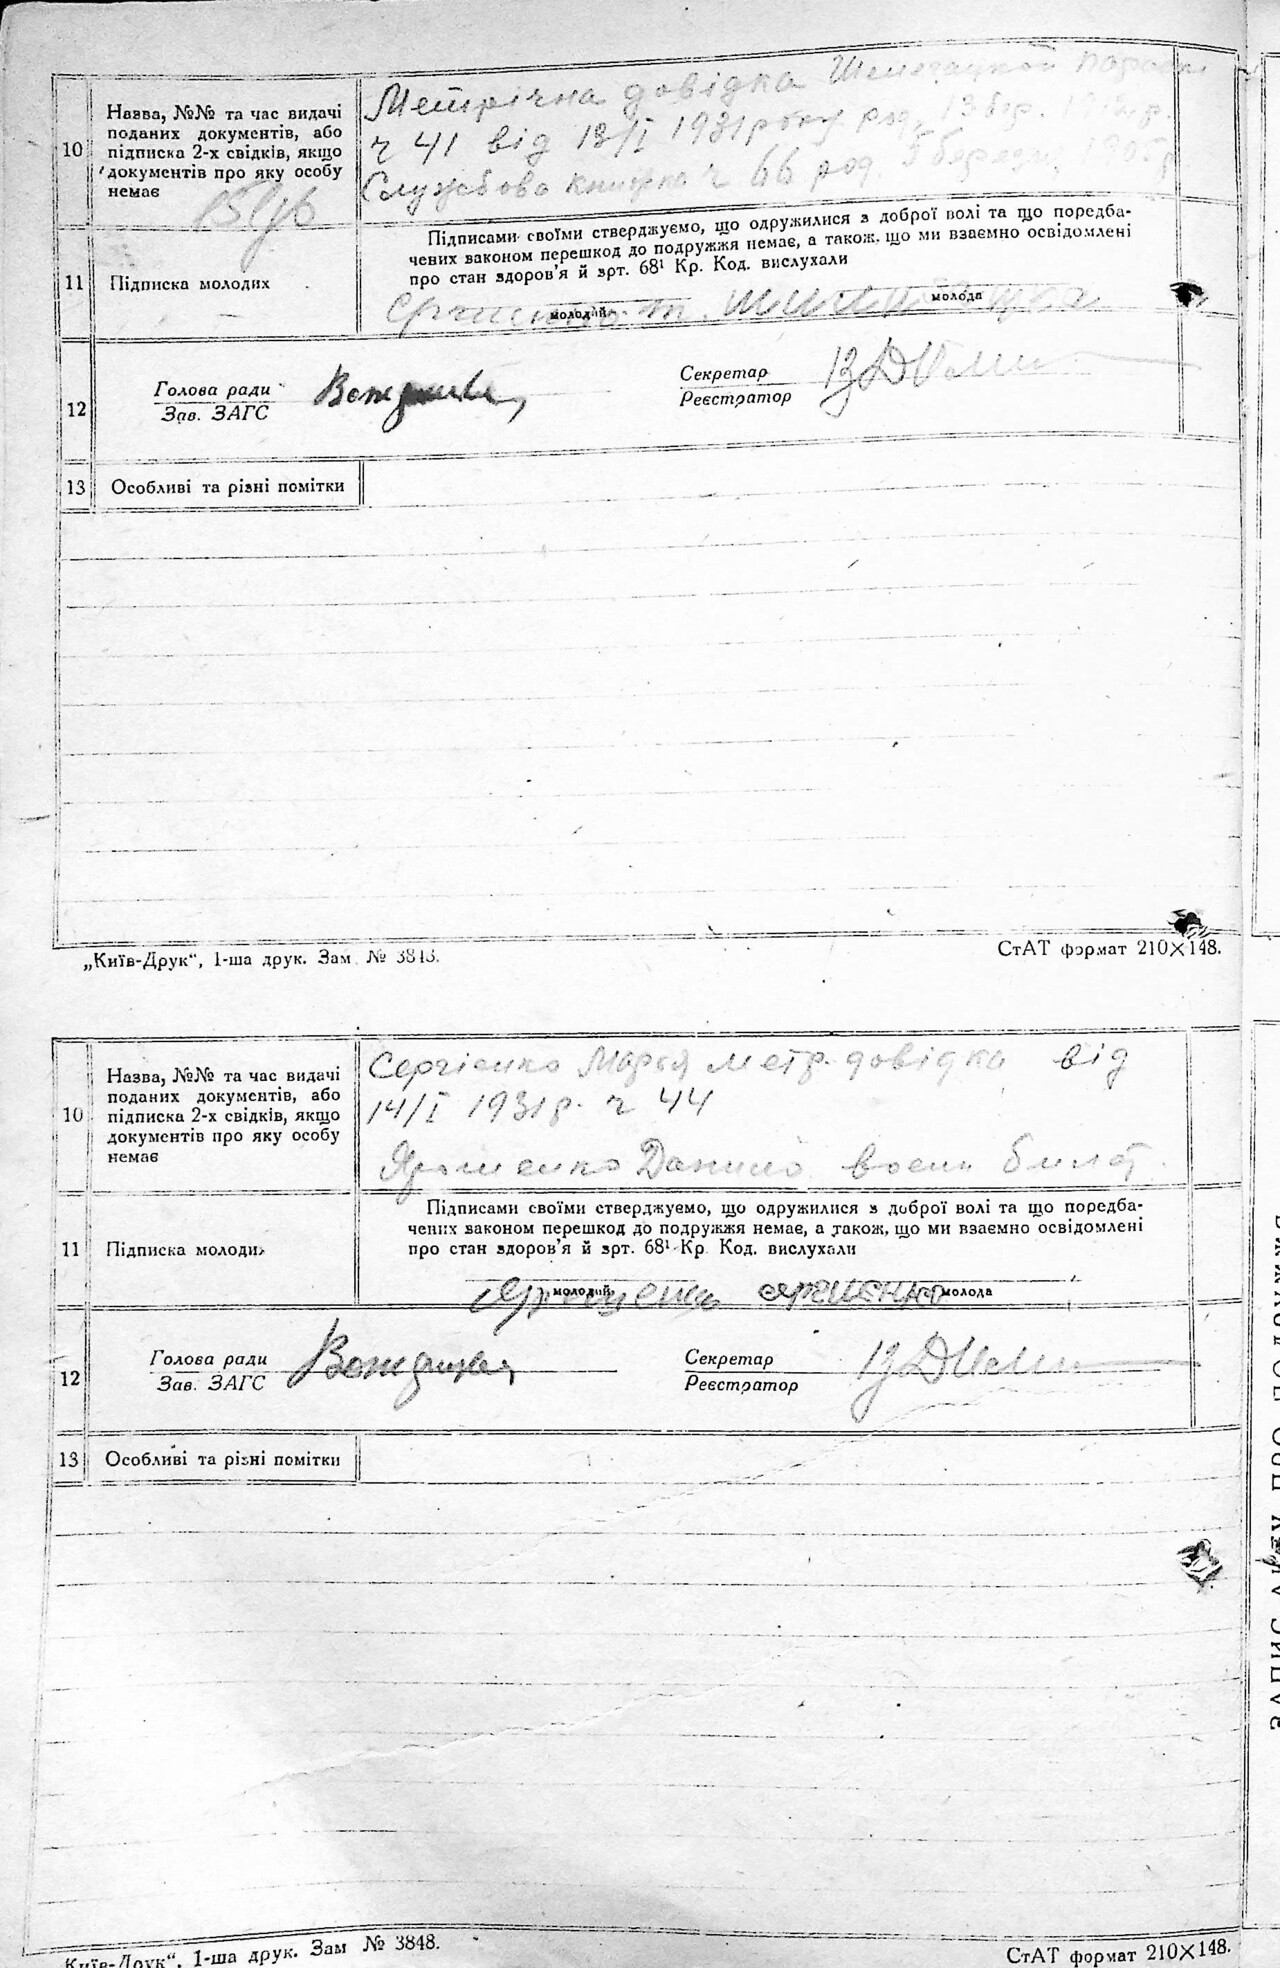 10
Назва, №№ та час видачі
поданих документів, або
підписка 2-х свідків, якщо
документів про яку особу
немає
Метрічна довідка
ч 41 від 13/I 1931 року род. 13 бер. 1912 р.
Службова книжка ч 66 род. 5 березня 1905 р
11
Підписка молодих
Підписами своїми стверджуємо, що одружилися з доброї волі та що поредба-
чених законом перешкод до подружжя немає, а також, що ми взаємно освідомлені
про стан здоров'я й зрт. 68¹ Кр. Код. вислухали
молодий
молода
12
Голова ради
Зав. ЗАГС
Секретар
Реєстратор
13
Особливі та різні помітки
„Київ-Друк“, 1-ша друк. Зам. № 3848.
СтАТ формат 210×148.
10
Назва, №№ та час видачі
поданих документів, або
підписка 2-х свідків, якщо
документів про яку особу
немає
Сергієнко Марья метр. довідка від
14/I 1931 р. ч 44
Ярошенко Данило воен. билет.
11
Підписка молодих
Підписами своїми стверджуємо, що одружилися з доброї волі та що поредба-
чених законом перешкод до подружжя немає, а також, що ми взаємно освідомлені
про стан здоров'я й зрт. 68¹ Кр. Код. вислухали
молодий
молода
12
Голова ради
Зав. ЗАГС
Секретар
Реєстратор
13
Особливі та різні помітки
Київ-Друк“, 1-ша друк. Зам № 3848.
СтАТ формат 210×148.